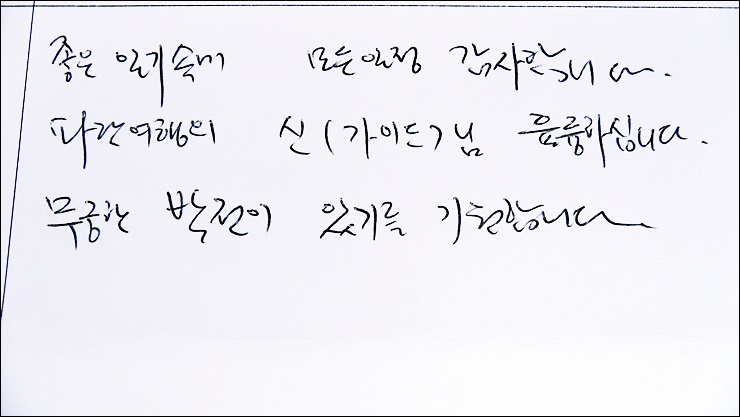 좋은 일기속에 모든일정 감사합니다.
파란여행의 신(가이드)님 훌륭하십니다.
무궁한 발전이 있기를 기원합니다